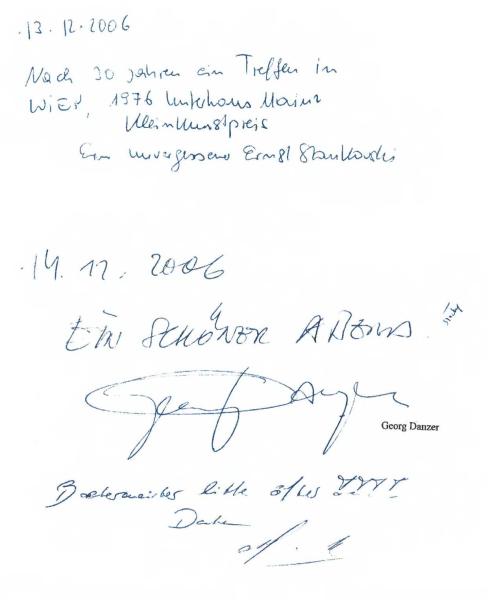 13.12.2006
Nach 30 Jahren ein Treffen in
WIEN, 1976 Unterhaus Mainz
Kleinkunstpreis
Ein unvergessener Ernst Stankovski
14.12.2006
EIN SCHÖNER ABEND.
Georg Danzer
Georg Danzer
bitte öfter !!!!
Danke